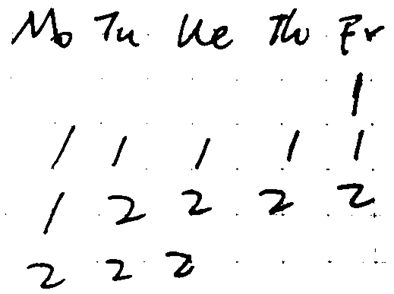 Mo Tu We Th Fr
1
1 1 1 1 1
1 2 2 2 2
2 2 2